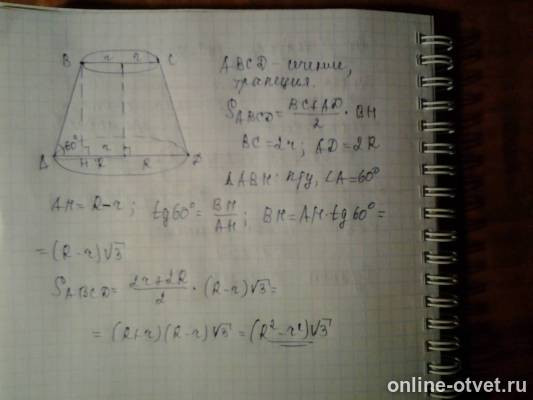 B r r C
A 60° H R r R D
ABCD – сечение,
трапеция.
S_ABCD = (BC+AD)/2 · BH
BC = 2r; AD = 2R
△ABH: п/у, ∠A = 60°
AH = R – r; tg60° = BH/AH; BH = AH·tg60° =
= (R – r)√3
S_ABCD = (2r+2R)/2 · (R – r)√3 =
= (R+r)(R–r)√3 = (R²–r²)√3
online-otvet.ru